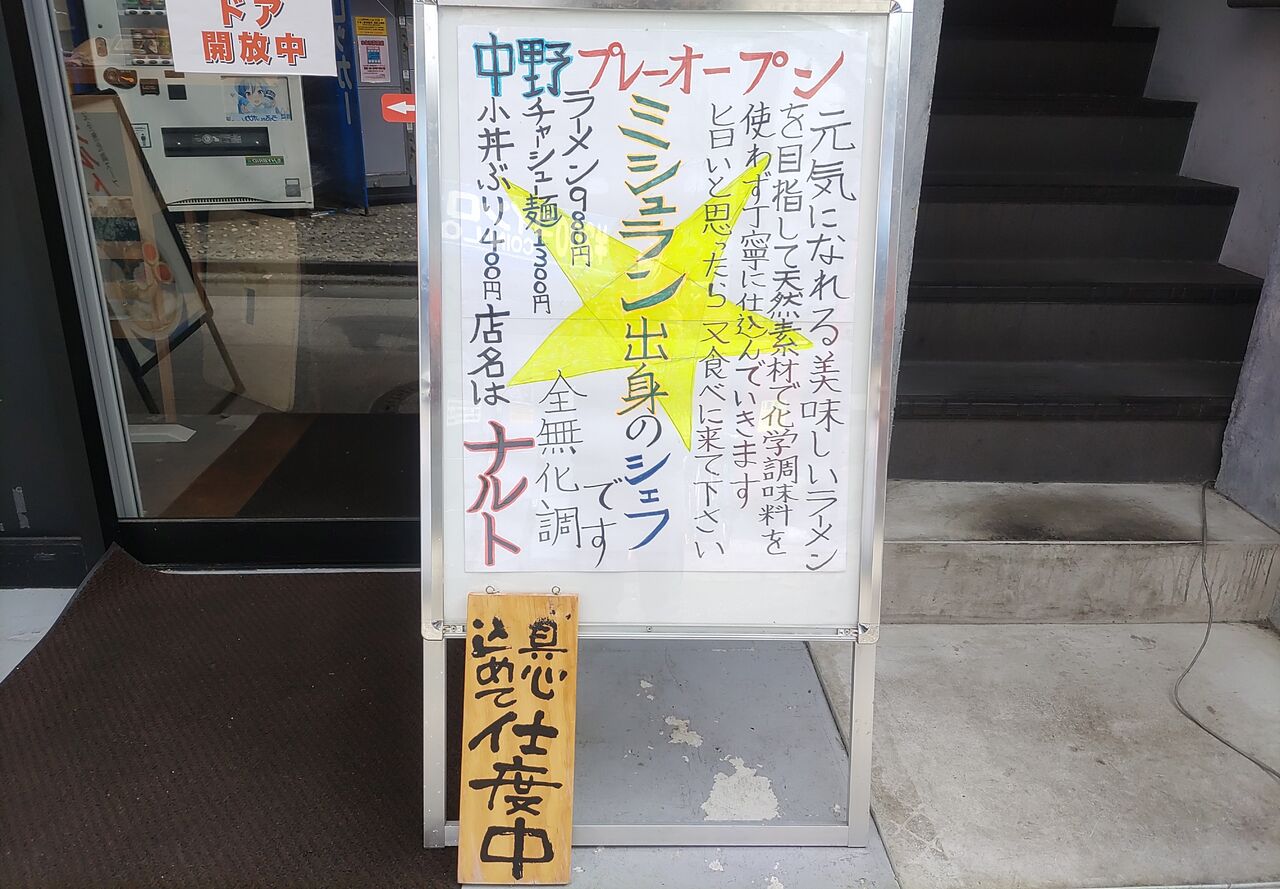 ドア
開放中
中野プレーオープン
元気になれる美味しいラーメン
を目指して天然素材で化学調味料を
使わず丁寧に仕込んでいきます
旨いと思ったら又食べに来て下さい
ミシュラン出身のシェフ
です
全無化調
ラーメン980円
チャーシュー麺1300円
小丼ぶり400円
店名は
ナルト
真心
込めて
仕度中